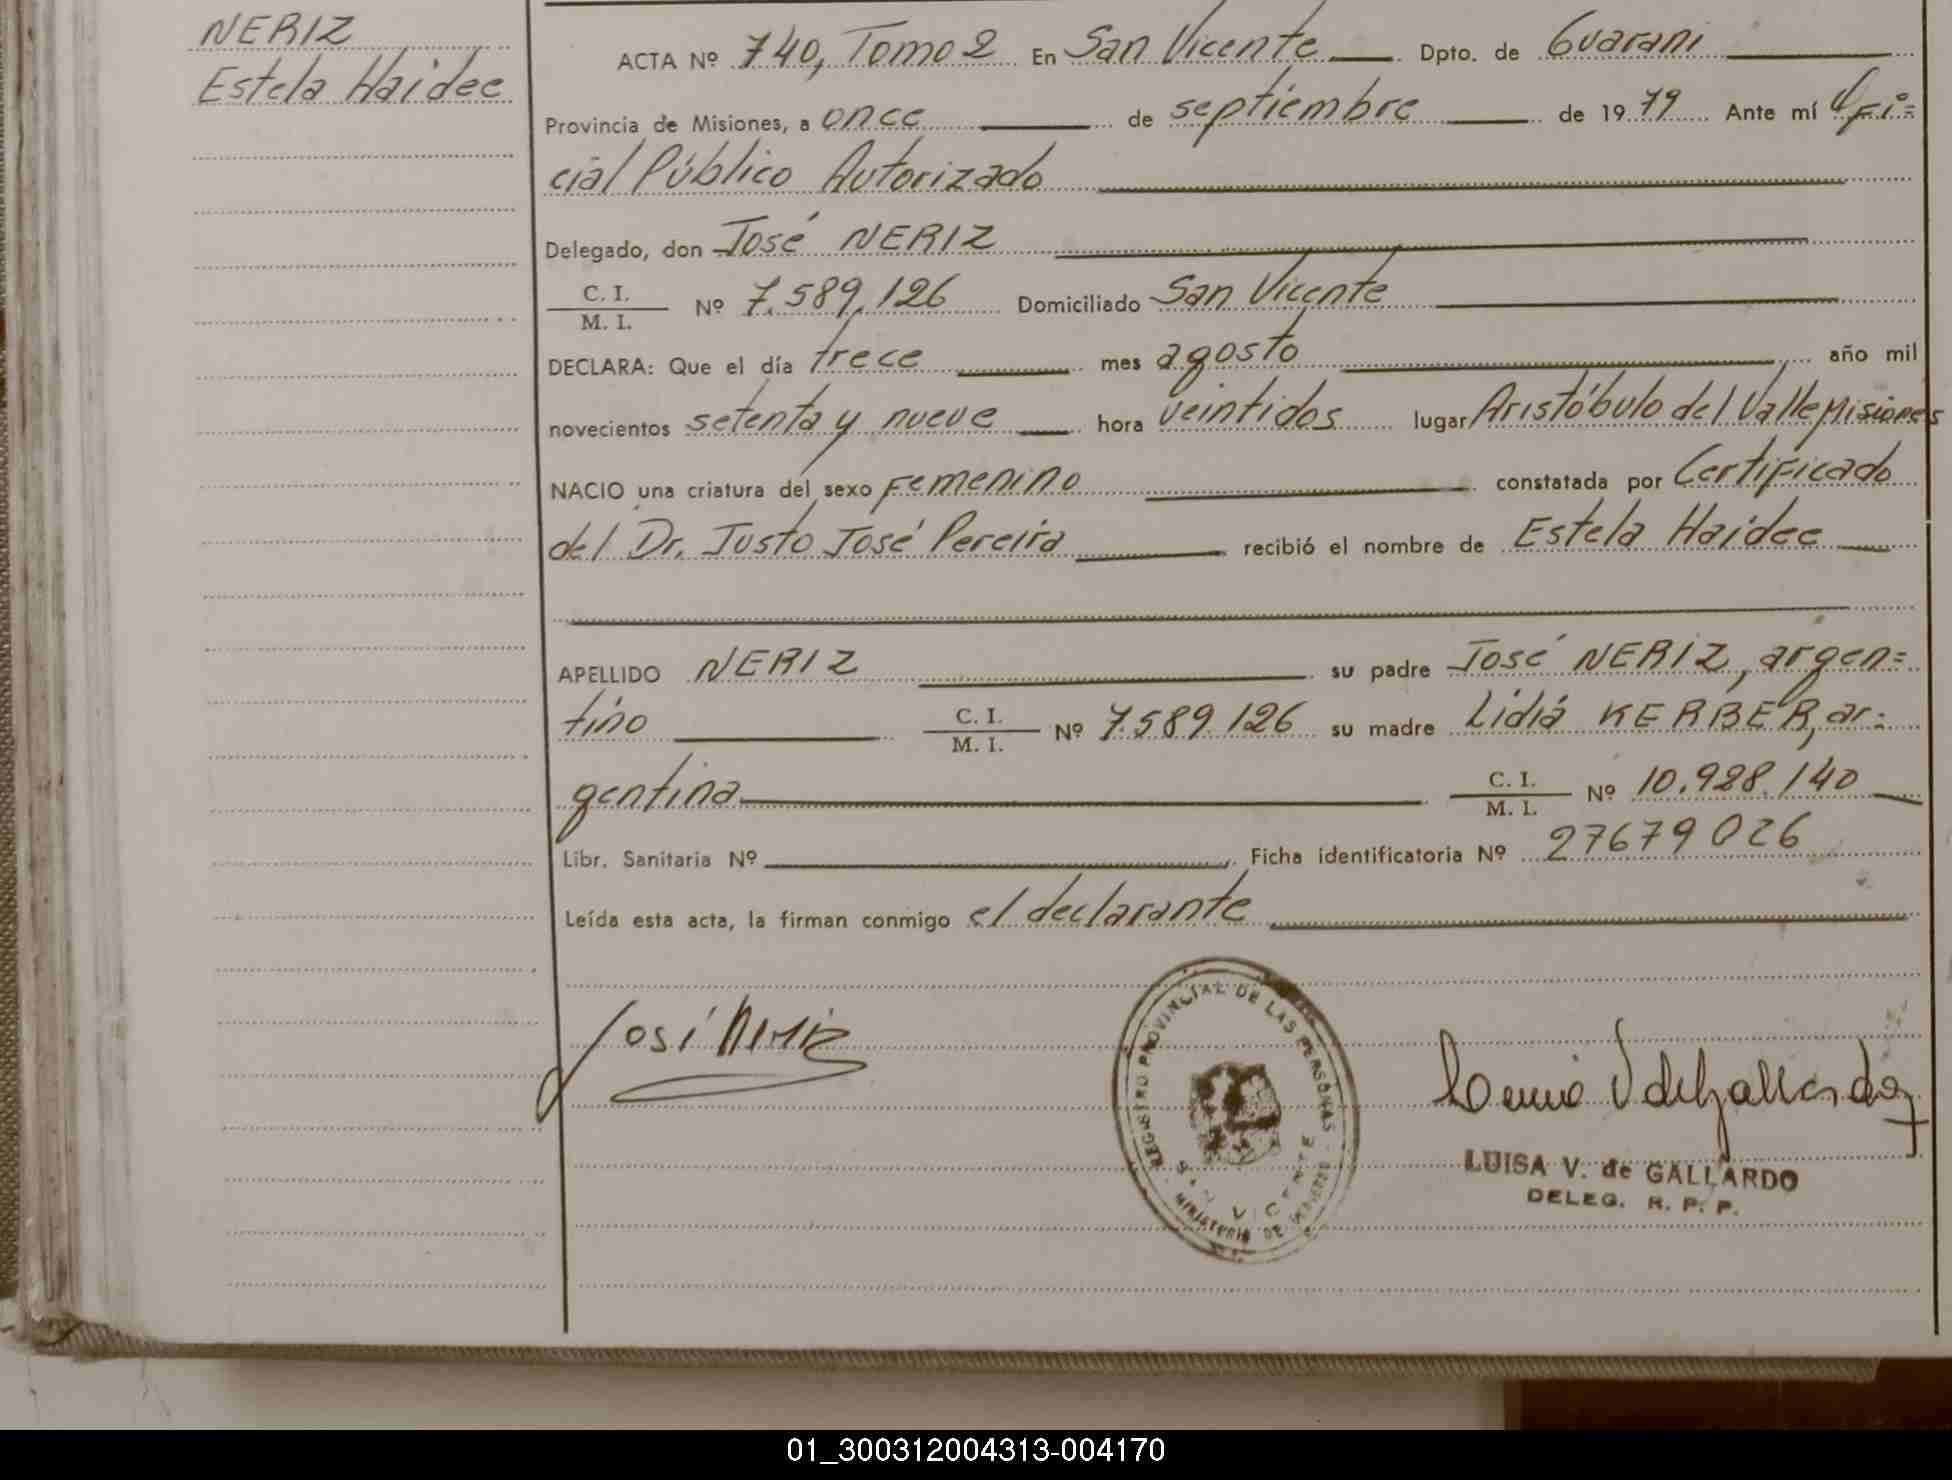 NERIZ
Estela Haidee
ACTA Nº 740, Tomo 2 En San Vicente Dpto. de Guarani
Provincia de Misiones, a once de septiembre de 1979 Ante mí Ofi=
cial Público Autorizado
Delegado, don José NERIZ
C. I. / M. I. Nº 7.589.126 Domiciliado San Vicente
DECLARA: Que el día trece mes agosto año mil
novecientos setenta y nueve hora veintidos lugar Aristóbulo del Valle Misiones
NACIO una criatura del sexo Femenino constatada por Certificado
del Dr. Justo José Pereira recibió el nombre de Estela Haidee
APELLIDO NERIZ su padre José NERIZ, argen=
tino C. I. / M. I. Nº 7.589.126 su madre Lidia KERBER, ar=
gentina C. I. / M. I. Nº 10.928.140
Libr. Sanitaria Nº Ficha identificatoria Nº 27679026
Leída esta acta, la firman conmigo el declarante
José Neriz
REGISTRO PROVINCIAL DE LAS PERSONAS
SAN VICENTE
MINISTERIO DE
LUISA V. de GALLARDO
DELEG. R. P. P.
01_300312004313-004170